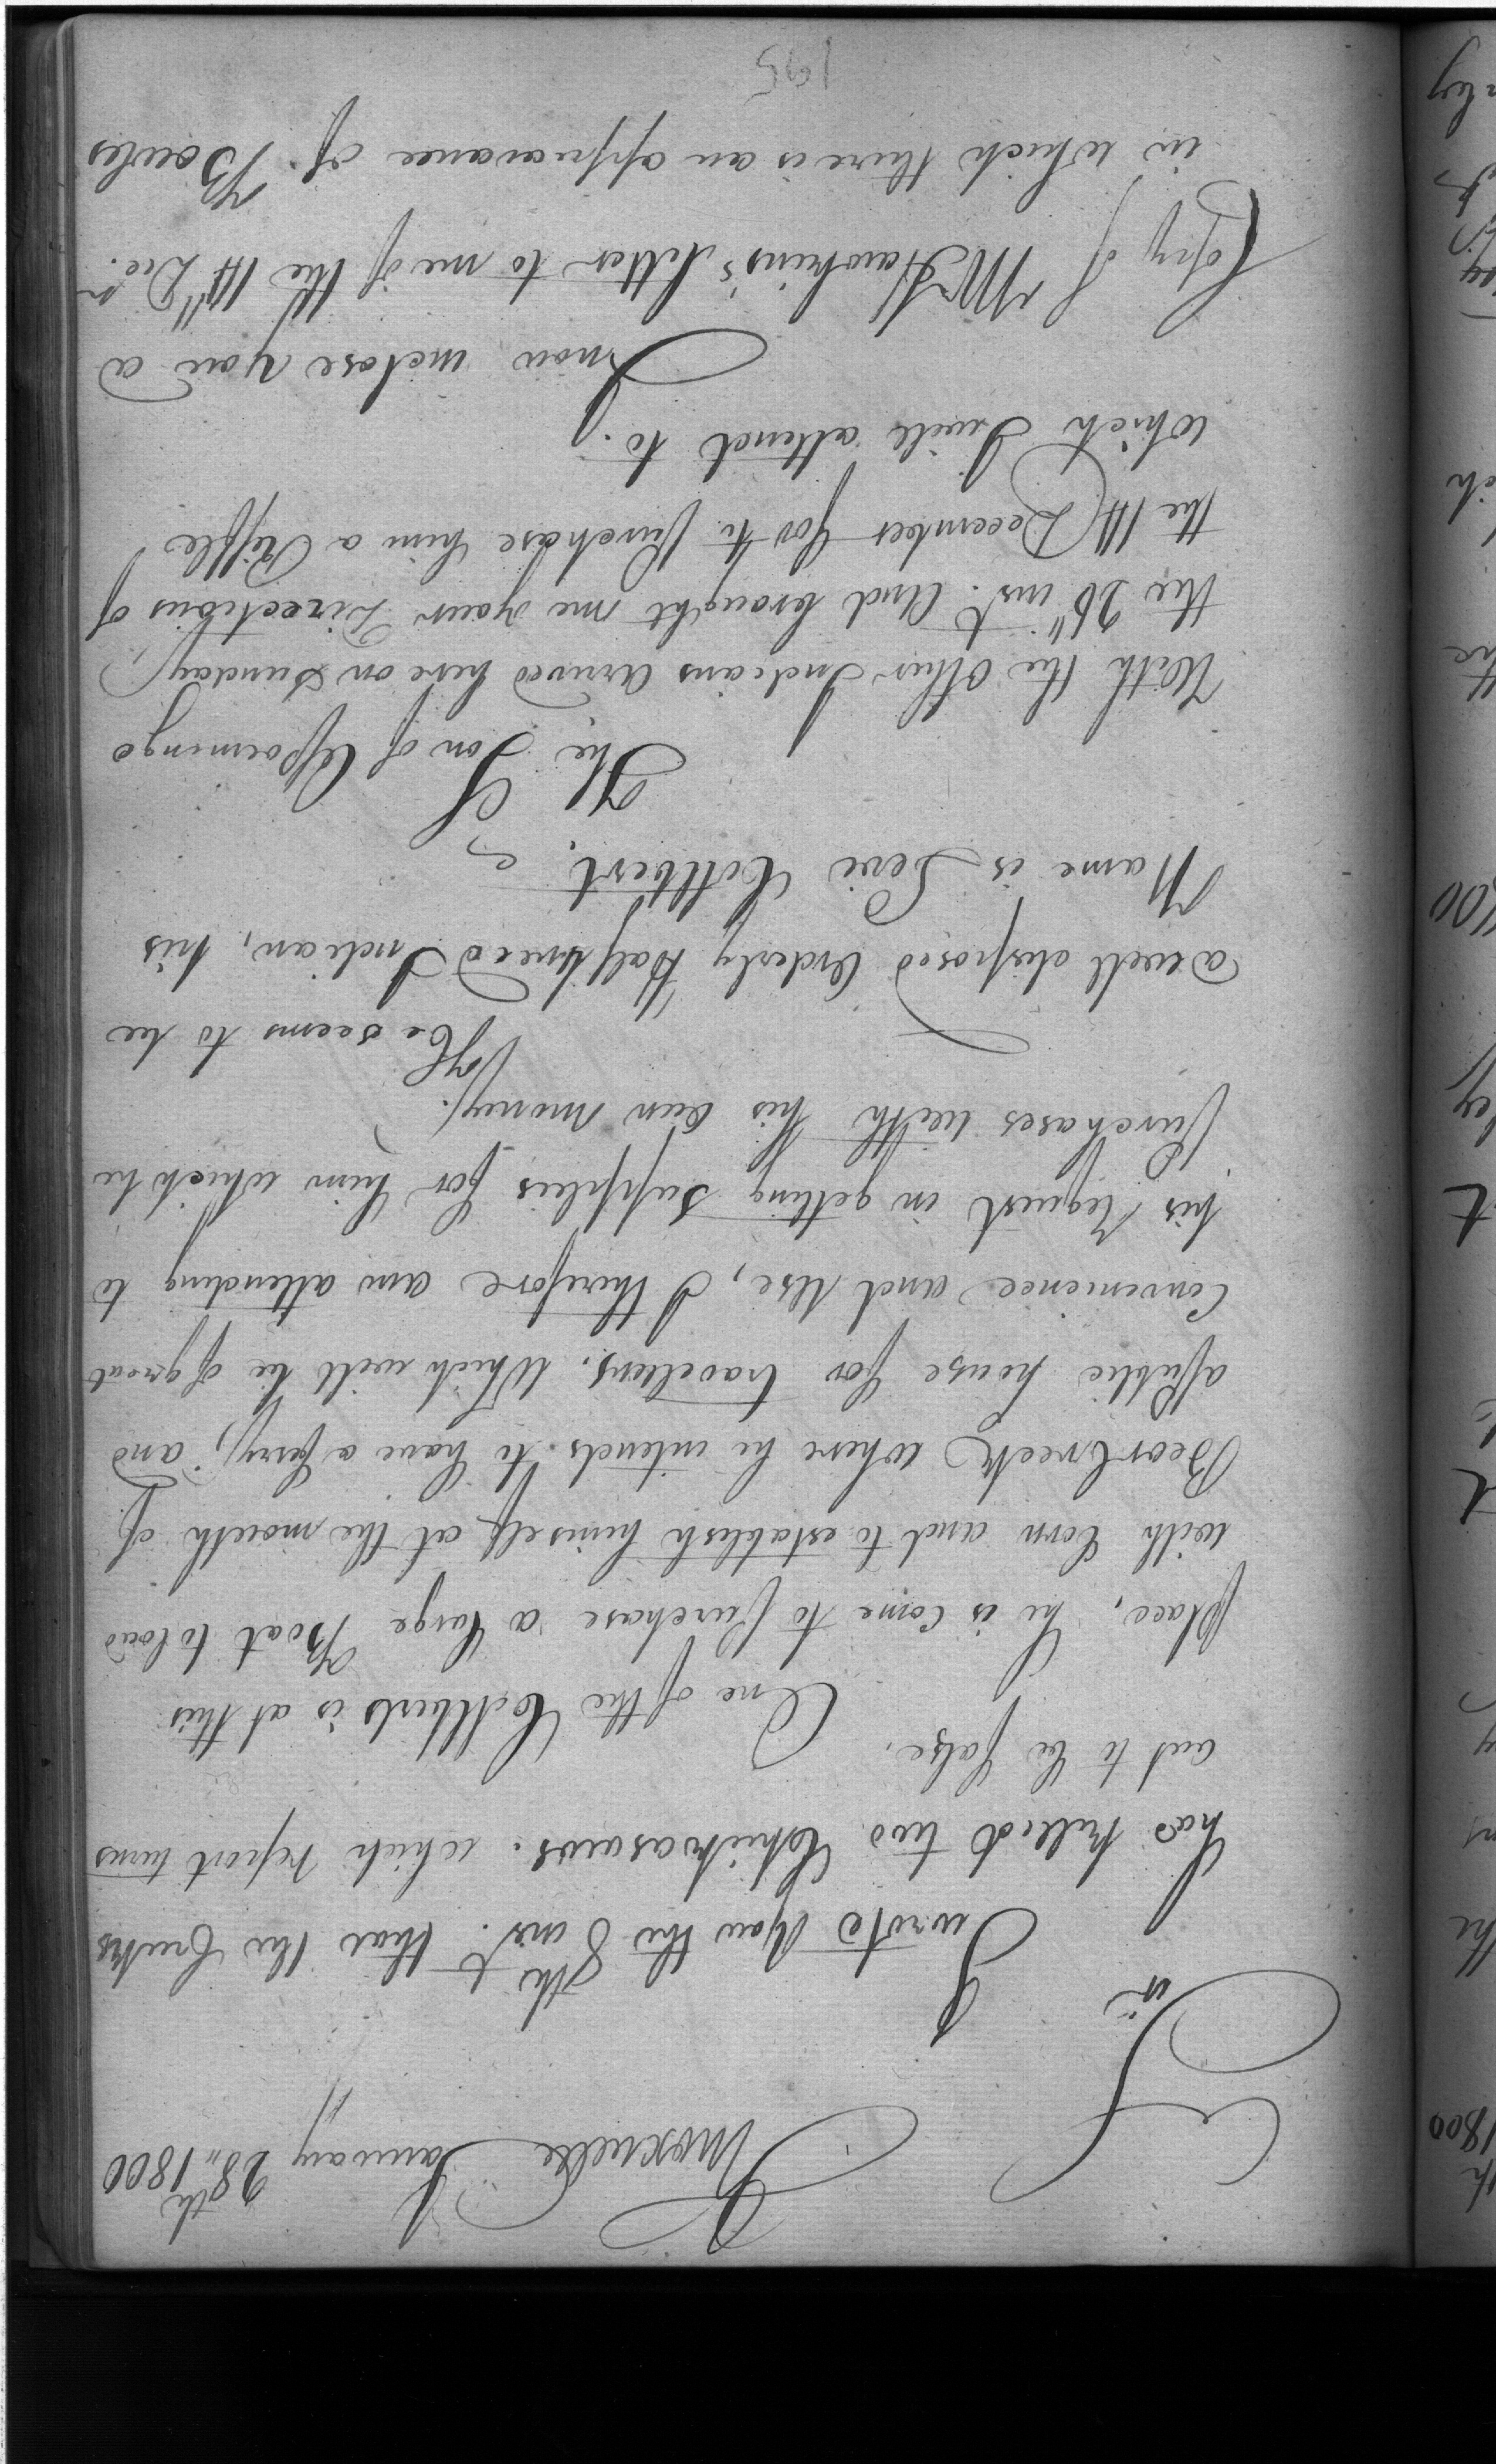 Knoxville January 28th 1800
Sir
I wrote You the 8th inst. that the Creeks
had killed two Chickasaws. which report turns
out to be false.
One of the Colberts is at this
place, he is come to purchase a large Boat to load
with Corn and to establish himself at the mouth of
Bear Creek where he intends to have a ferry, and
a public house for travellers. which will be of great
Convenience and Use, I therefore am attending to
his request in getting supplies for him which he
purchases with his own money.
He seems to be
a well disposed Orderly Half breed Indian, his
Name is Levi Collbert.
The Son of Opoemingo
With the other Indians arrived here on Sunday
the 26" inst. And brought me your Directions of
the 1st December for to purchase him a Riffle
which I will attend to.
I now inclose You a
Copy of Mr Hawkins's letter to me of the 1st" Decr.
in which there is an appearance of Bowles
195